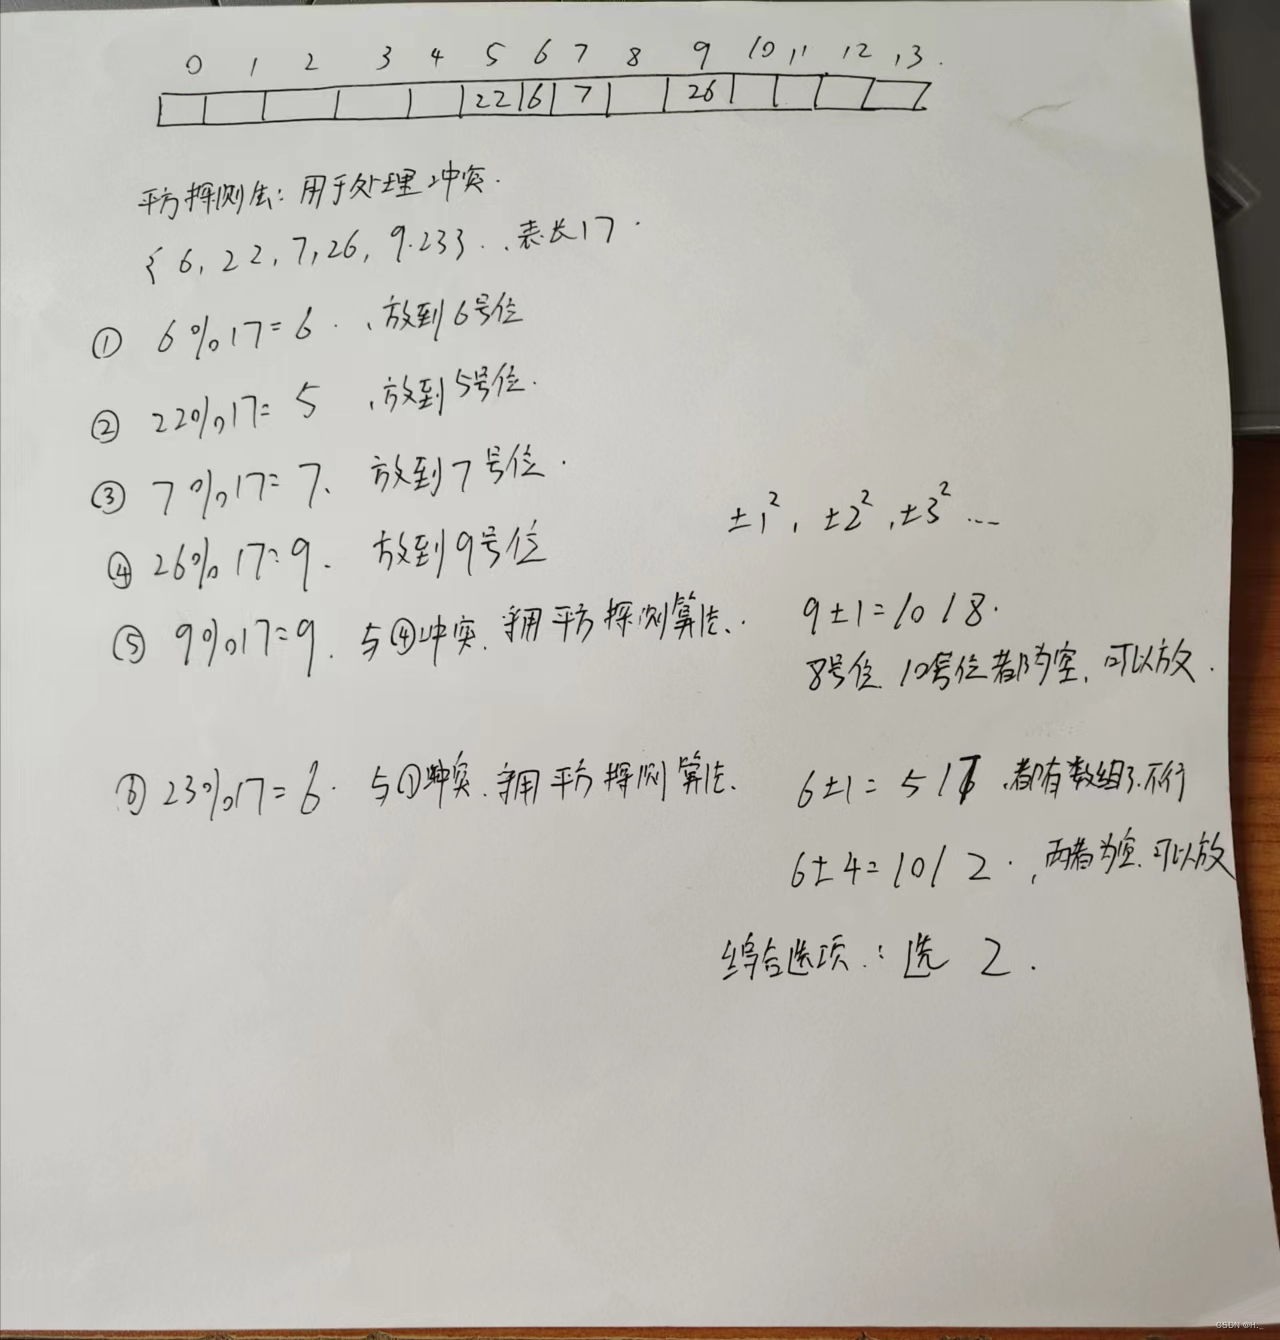 0 1 2 3 4 5 6 7 8 9 10 11 12 13.
22 6 7 26
平方探测法：用于处理冲突.
{6, 22, 7, 26, 9.23}. 、表长17.
① 6%17=6. 、放到6号位
② 22%17=5 、放到5号位.
③ 7%17=7、 放到7号位.
±1²，±2²，±3² ...
④ 26%17=9. 放到9号位
⑤ 9%17=9. 与④冲突. 采用平方探测算法.
9±1=10/8.
8号位 10号位都为空，可以放.
⑥ 23%17=6. 与①冲突. 采用平方探测算法.
6±1=5/7 .都有数组了.不行
6±4=10/2. , 两者为空.可以放
综合选项：选 2.
CSDN @H._